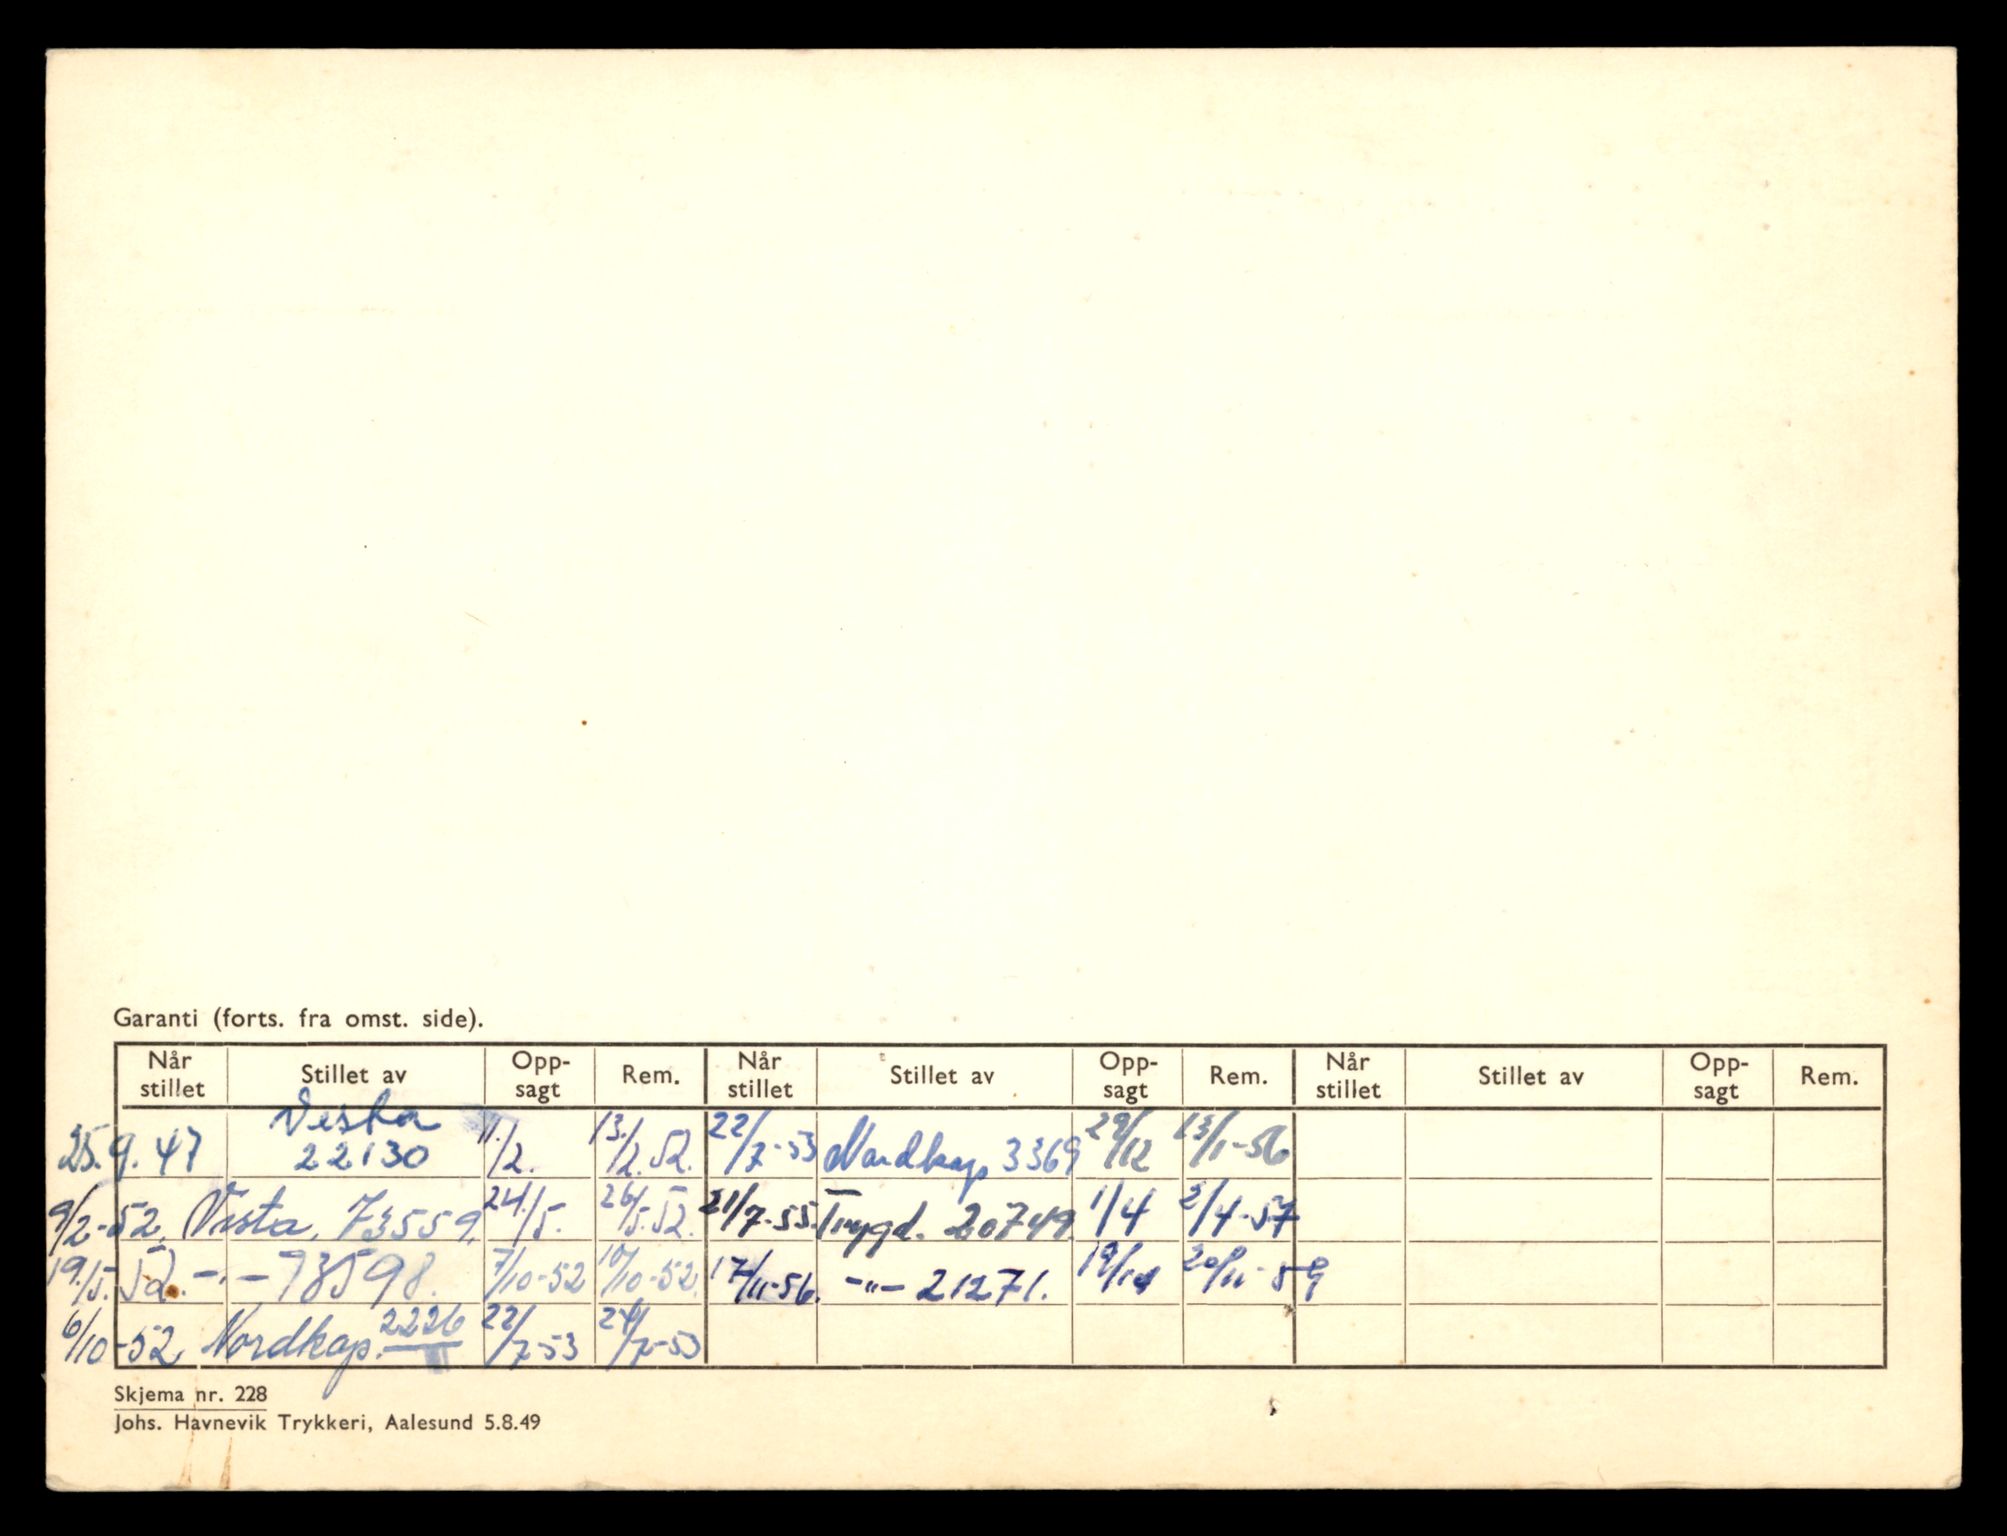 Garanti (forts. fra omst. side).
Når stillet | Stillet av | Opp-sagt | Rem. | Når stillet | Stillet av | Opp-sagt | Rem. | Når stillet | Stillet av | Opp-sagt | Rem.
25.9.47 | Vesta 22130 | 11./2. | 13./2.52. | 22/7-53 | Nordkap 3369 | 29/12 | 13/1-56
9/2-52. | Vesta. 73559. | 24./5. | 26/5.52. | 21/7-55. | Trygd. 20749 | 1/4 | 2/4-57
19./5.52. | -"- 73598. | 7/10-52 | 10/10-52. | 17/11-56. | -"- 21271. | 20/11-59
6/10-52 | Nordkap. 2226 | 22/7-53 | 24/7-53
Skjema nr. 228
Johs. Havnevik Trykkeri, Aalesund 5.8.49